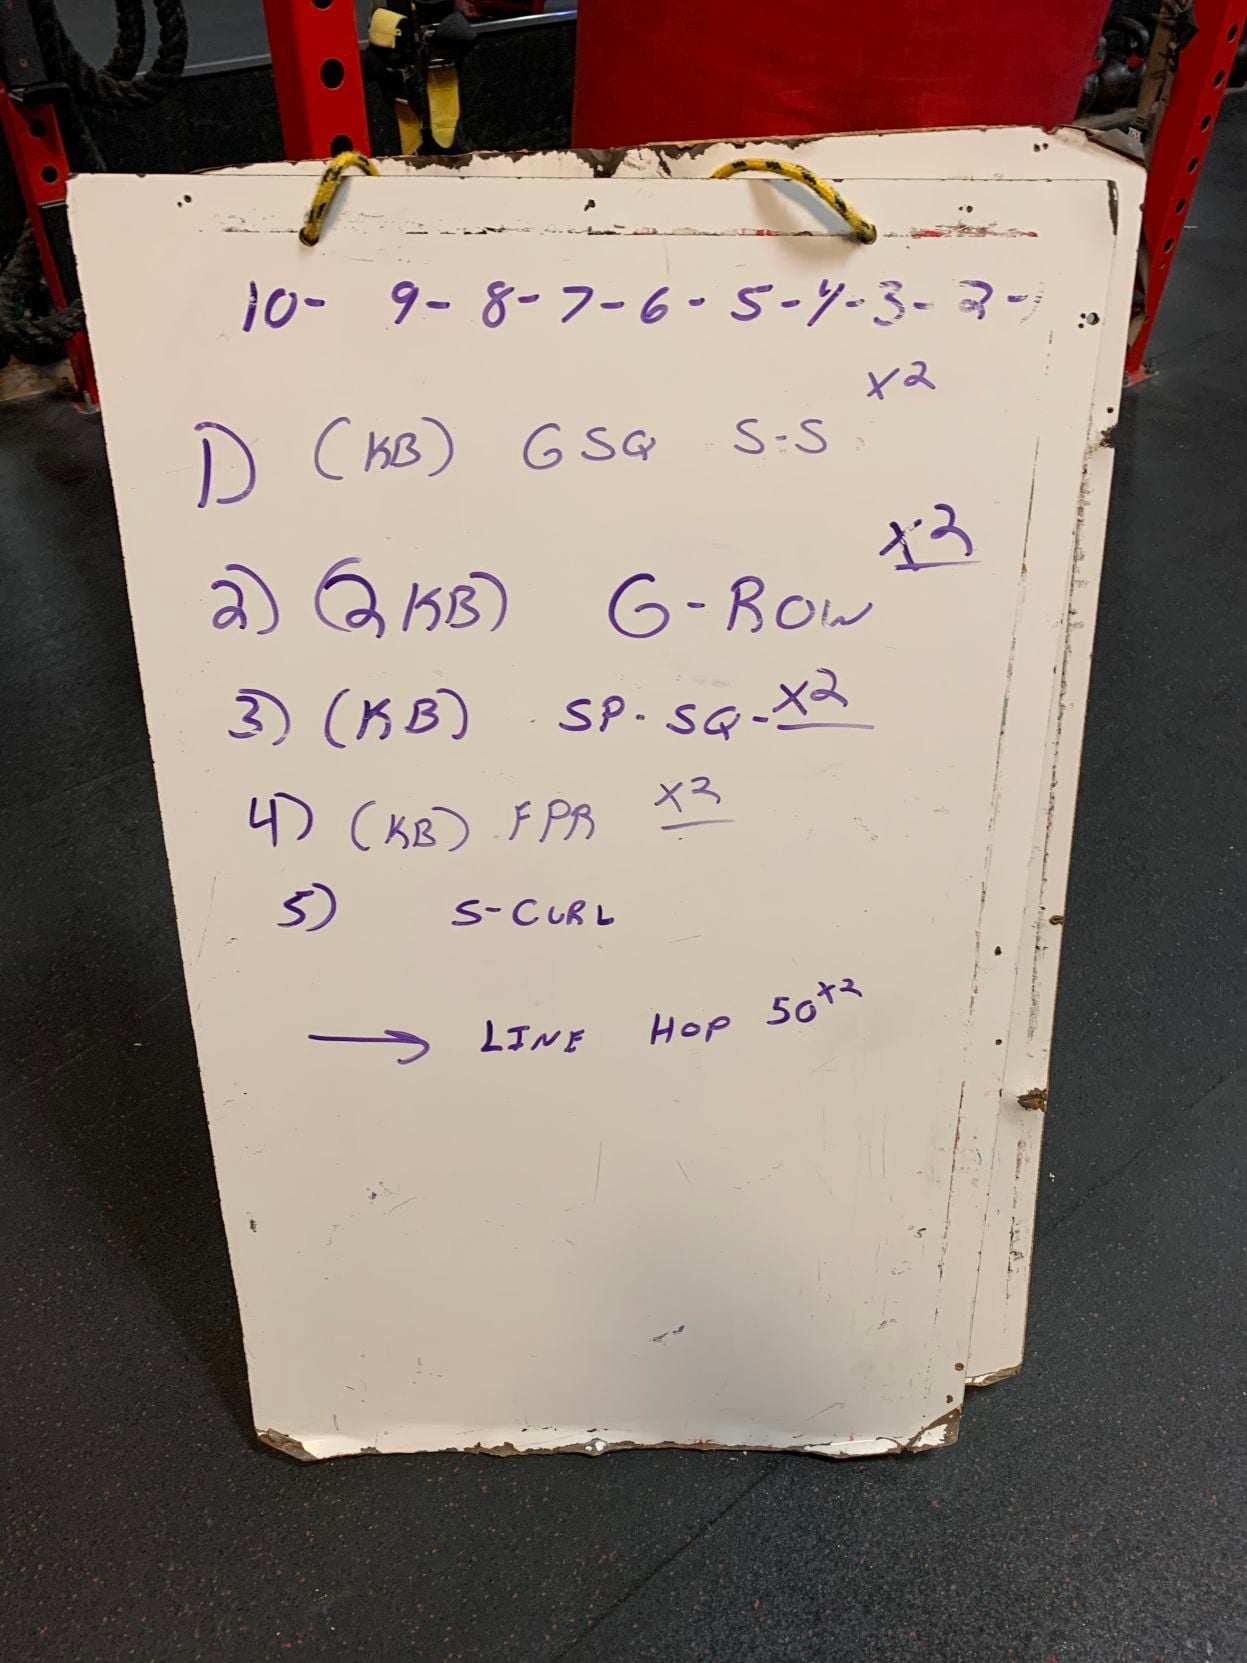 10- 9- 8- 7- 6- 5- 4- 3- 2- 1
1) (KB) GSQ S-S x2
2) (2KB) G-ROW x2
3) (KB) SP- SQ- x2
4) (KB) FPR x2
5) S-CURL
→ LINE HOP 50 x2